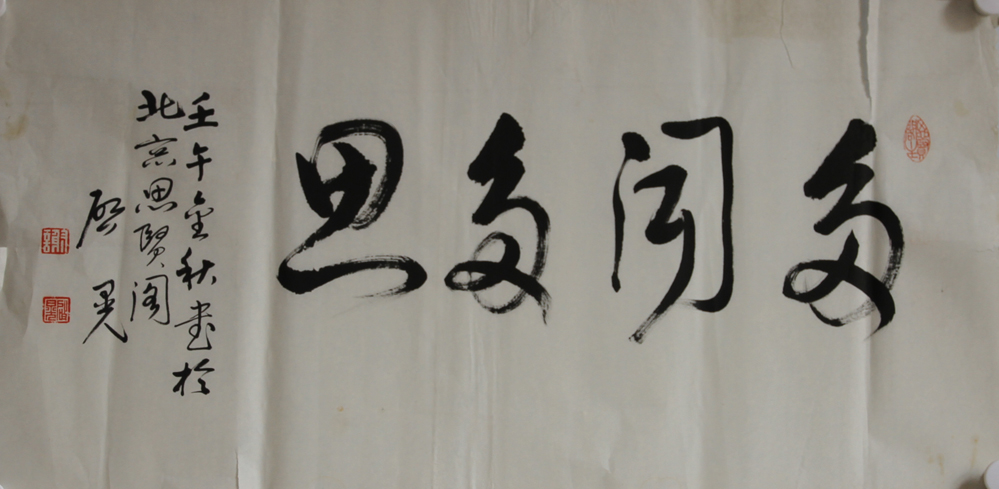 多闻多思
壬午金秋书於
北京思贤阁
启晃